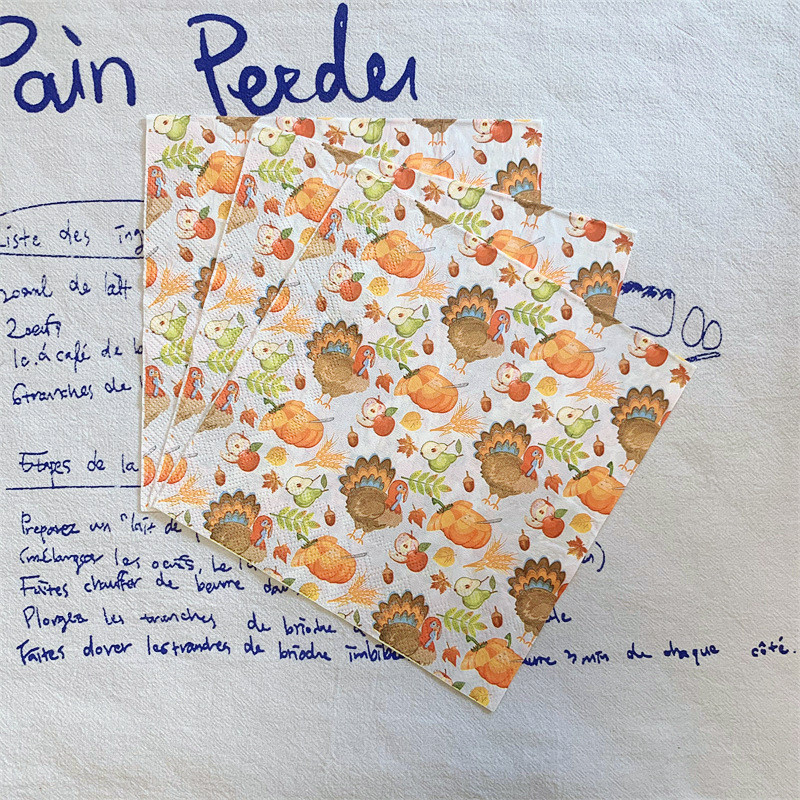 Pain Perdu
Liste des ing
200ml de lait
2 oeufs
1c. à café de
6 tranches de
Etapes de la
Preparez un "lait de
(mélanger les oeufs, le
Faites chauffer de beurre
Plongez les tranches de brioche
Faites dorer les tranches de brioche imbibé 3 min de chaque côté.